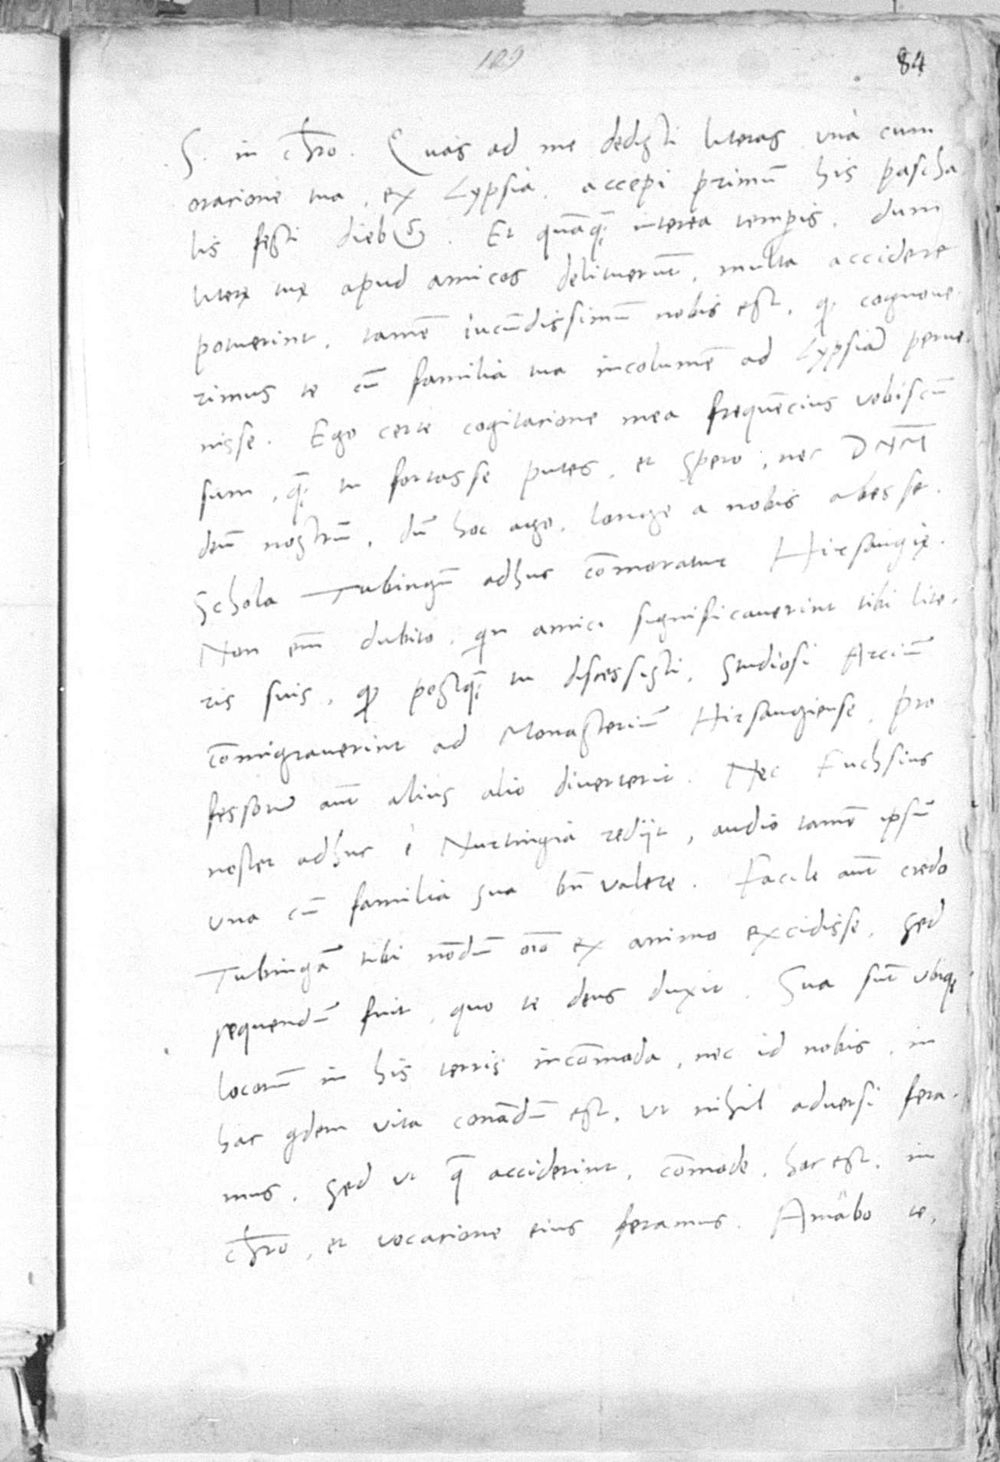 109
84
S. in Chr̄o. Quas ad me dedisti literas unà cum
oracione tua, ex Lypsia, accepi primũ his pascha
lis festi diebus. Et quãq̃ interea temp̱is, dum
literę tuę apud amicos delituerũt, multa accidere
potuerint, tamẽ iucũdissimũ nobis est, q̱ cognoue-
rimus te cũ familia tua incolumẽ ad Lypsiã perue-
nisse. Ego certe cogitacione mea frequẽcius vobiscũ
sum, q̃ tu fortasse putes, et spero, nec DNM̄
deũ nostrũ, dũ hoc ago, longe a nobis abesse.
Schola Tubingẽ adhuc cõmoratur Hirsaugię.
Non em̄ dubito, qn̄ amici significauerint tibi lite-
ris suis, q̱ postq̃ tu discessisti, studiosi Arciũ
cõmigrauerint ad Monasteriũ Hirsaugiense, pro
fessorũ aũt alius alio diuerterit. Nec Fuchsius
noster adhuc è Nurtingia redijt, audio tamẽ ipsũ
vna cũ familia sua bñ valere. Facile aũt credo
Tubingã tibi nõdũ oīo ex animo excidisse, sed
sequendũ fuit, quo te deus duxit. Sua sũt vbiq̱
locorũ in his terris incõmoda, nec id nobis, in
hac q̱dem vita conãdũ est, ut nihil aduersi fera-
mus, sed ut q̃ acciderint, cõmode, hoc est, in
Chr̄o, et vocacione eius feramus. Amabo te,